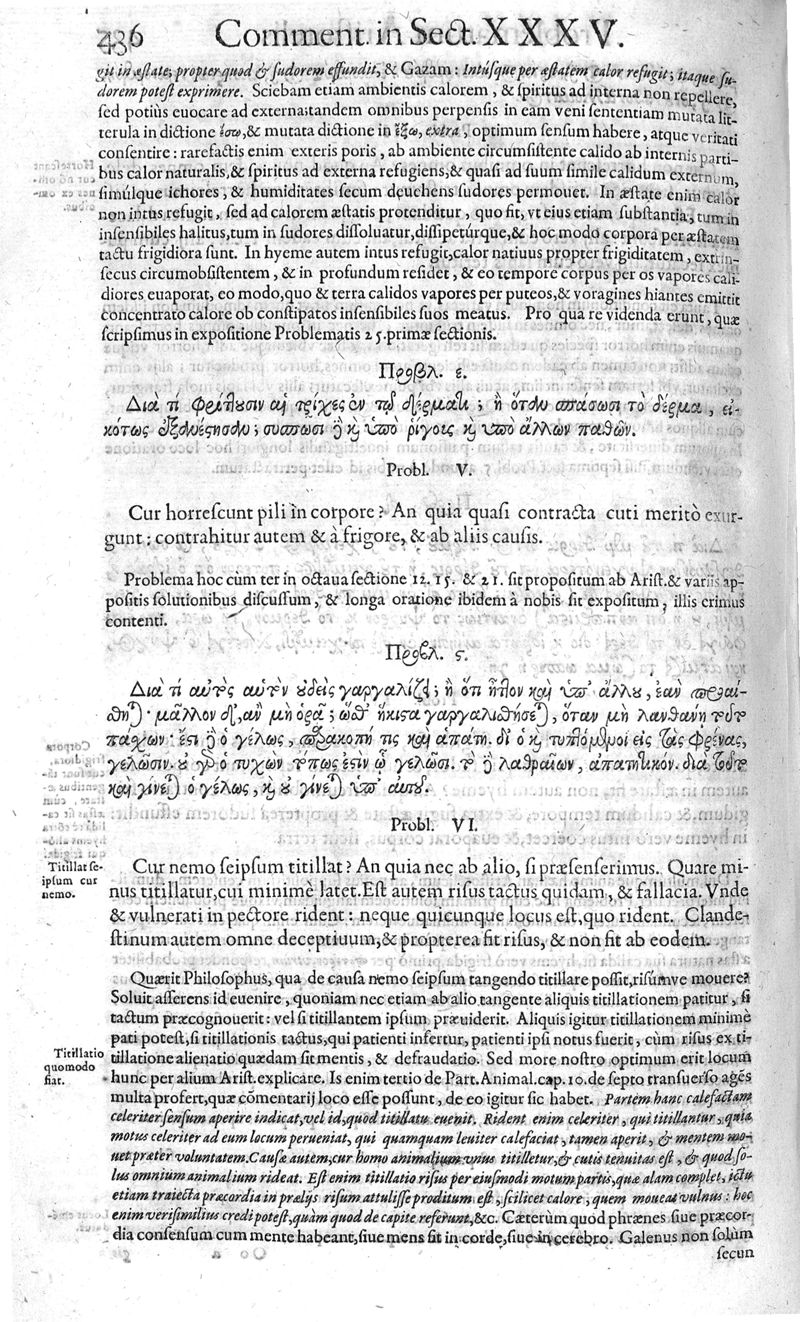 436 Comment. in Sect. XXXV.
git in æstate; propter quod & sudorem effundit, & Gazam: Intúsque per æstatem calor refugit; itaque su-
dorem potest exprimere. Sciebam etiam ambientis calorem, & spiritus ad interna non repellere,
sed potiùs euocare ad externa: tandem omnibus perpensis in eam veni sententiam mutata lit-
terula in dictione ἔσω, & mutata dictione in ἔξω, extra, optimum sensum habere, atque veritati
consentire: rarefactis enim exteris poris, ab ambiente circumsistente calido ab internis parti-
bus calor naturalis, & spiritus ad externa refugiens, & quasi ad suum simile calidum externum,
simúlque ichores, & humiditates secum deuehens sudores permouet. In æstate enim calor
non intus refugit, sed ad calorem æstatis protenditur, quo fit, vt eius etiam substantia, tum in
insensibiles halitus, tum in sudores dissoluatur, dissipetúrque, & hoc modo corpora per æstatem
tactu frigidiora sunt. In hyeme autem intus refugit, calor natiuus propter frigiditatem, extrin-
secus circumobsistentem, & in profundum residet, & eo tempore corpus per os vapores cali-
diores euaporat, eo modo, quo & terra calidos vapores per puteos, & voragines hiantes emittit
concentrato calore ob constipatos insensibiles suos meatus. Pro qua re videnda erunt, quæ
scripsimus in expositione Problematis 25. primæ sectionis.
Προβλ. ε.
Διὰ τί φρίττουσιν αἱ τρίχες ἐν τῷ δέρματι; ἢ ὅταν σπάσωσι τὸ δέρμα, εἰ-
κότως ἐξανέστησαν; συσπῶσι δὲ καὶ ὑπὸ ῥίγους καὶ ὑπὸ ἄλλων παθῶν.
Probl. V.
Cur horrescunt pili in corpore? An quia quasi contracta cuti meritò exur-
gunt: contrahitur autem & à frigore, & ab aliis causis.
Problema hoc cùm ter in octaua sectione 12. 15. & 21. sit propositum ab Arist. & variis ap-
positis solutionibus discussum, & longa oratione ibidem à nobis sit expositum, illis erimus
contenti.
Προβλ. ϛ.
Διὰ τί αὐτὸς αὑτὸν οὐδεὶς γαργαλίζει; ἢ ὅτι ἧττον καὶ ὑπ' ἄλλου, ἐὰν προαί-
σθηται· μᾶλλον δ', ἂν μὴ ὁρᾷ; ὥσθ' ἥκιστα γαργαλισθήσεται, ὅταν μὴ λανθάνῃ τοῦτο
πάσχων· ἔστι δὲ ὁ γέλως, παρακοπή τις καὶ ἀπάτη. δι' ὃ καὶ τυπτόμενοι εἰς τὰς φρένας,
γελῶσιν. οὐ γὰρ ὁ τυχὼν τόπος ἐστὶν ᾧ γελῶσι. τὸ δὲ λαθραῖον, ἀπατητικόν. διὰ τοῦτο
καὶ γίνεται ὁ γέλως, καὶ οὐ γίνεται ὑπ' αὐτοῦ.
Probl. VI.
Titillat se-
ipsum cur
nemo.
Cur nemo seipsum titillat? An quia nec ab alio, si præsenserimus. Quare mi-
nus titillatur, cui minimè latet. Est autem risus tactus quidam, & fallacia. Vnde
& vulnerati in pectore rident: neque quicunque locus est, quo rident. Clande-
stinum autem omne deceptiuum, & propterea fit risus, & non fit ab eodem.
Quærit Philosophus, qua de causa nemo seipsum tangendo titillare possit, risúmve mouere?
Soluit asserens id euenire, quoniam nec etiam ab alio tangente aliquis titillationem patitur, si
tactum præcognouerit: vel si titillantem ipsum præuiderit. Aliquis igitur titillationem minimè
pati potest, si titillationis tactus, qui patienti infertur, patienti ipsi notus fuerit, cùm risus ex ti-
Titillatio
quomodo
fiat.
tillatione alienatio quædam sit mentis, & defraudatio. Sed more nostro optimum erit locum
hunc per alium Arist. explicare. Is enim tertio de Part. Animal. cap. 10. de septo transuerso agẽs
multa profert, quæ cõmentarij loco esse possunt, de eo igitur sic habet. Partem hanc calefactam
celeriter sensum aperire indicat, vel id, quod titillatu euenit. Rident enim celeriter, qui titillantur, quia
motus celeriter ad eum locum perueniat, qui quamquam leuiter calefaciat, tamen aperit, & mentem mo-
uet præter voluntatem. Causæ autem, cur homo animalium vnus titilletur, & cutis tenuitas est, & quod so-
lus omnium animalium rideat. Est enim titillatio risus per eiusmodi motum partis, quæ alam complet, ictu
etiam traiecta præcordia in prælijs risum attulisse proditum est, scilicet calore, quem moueat vulnus: hoc
enim verisimilius credi potest, quàm quod de capite referunt, &c. Cæterùm quod phrænes siue præcor-
dia consensum cum mente habeant, siue mens sit in corde, siue in cerebro. Galenus non solùm
secun